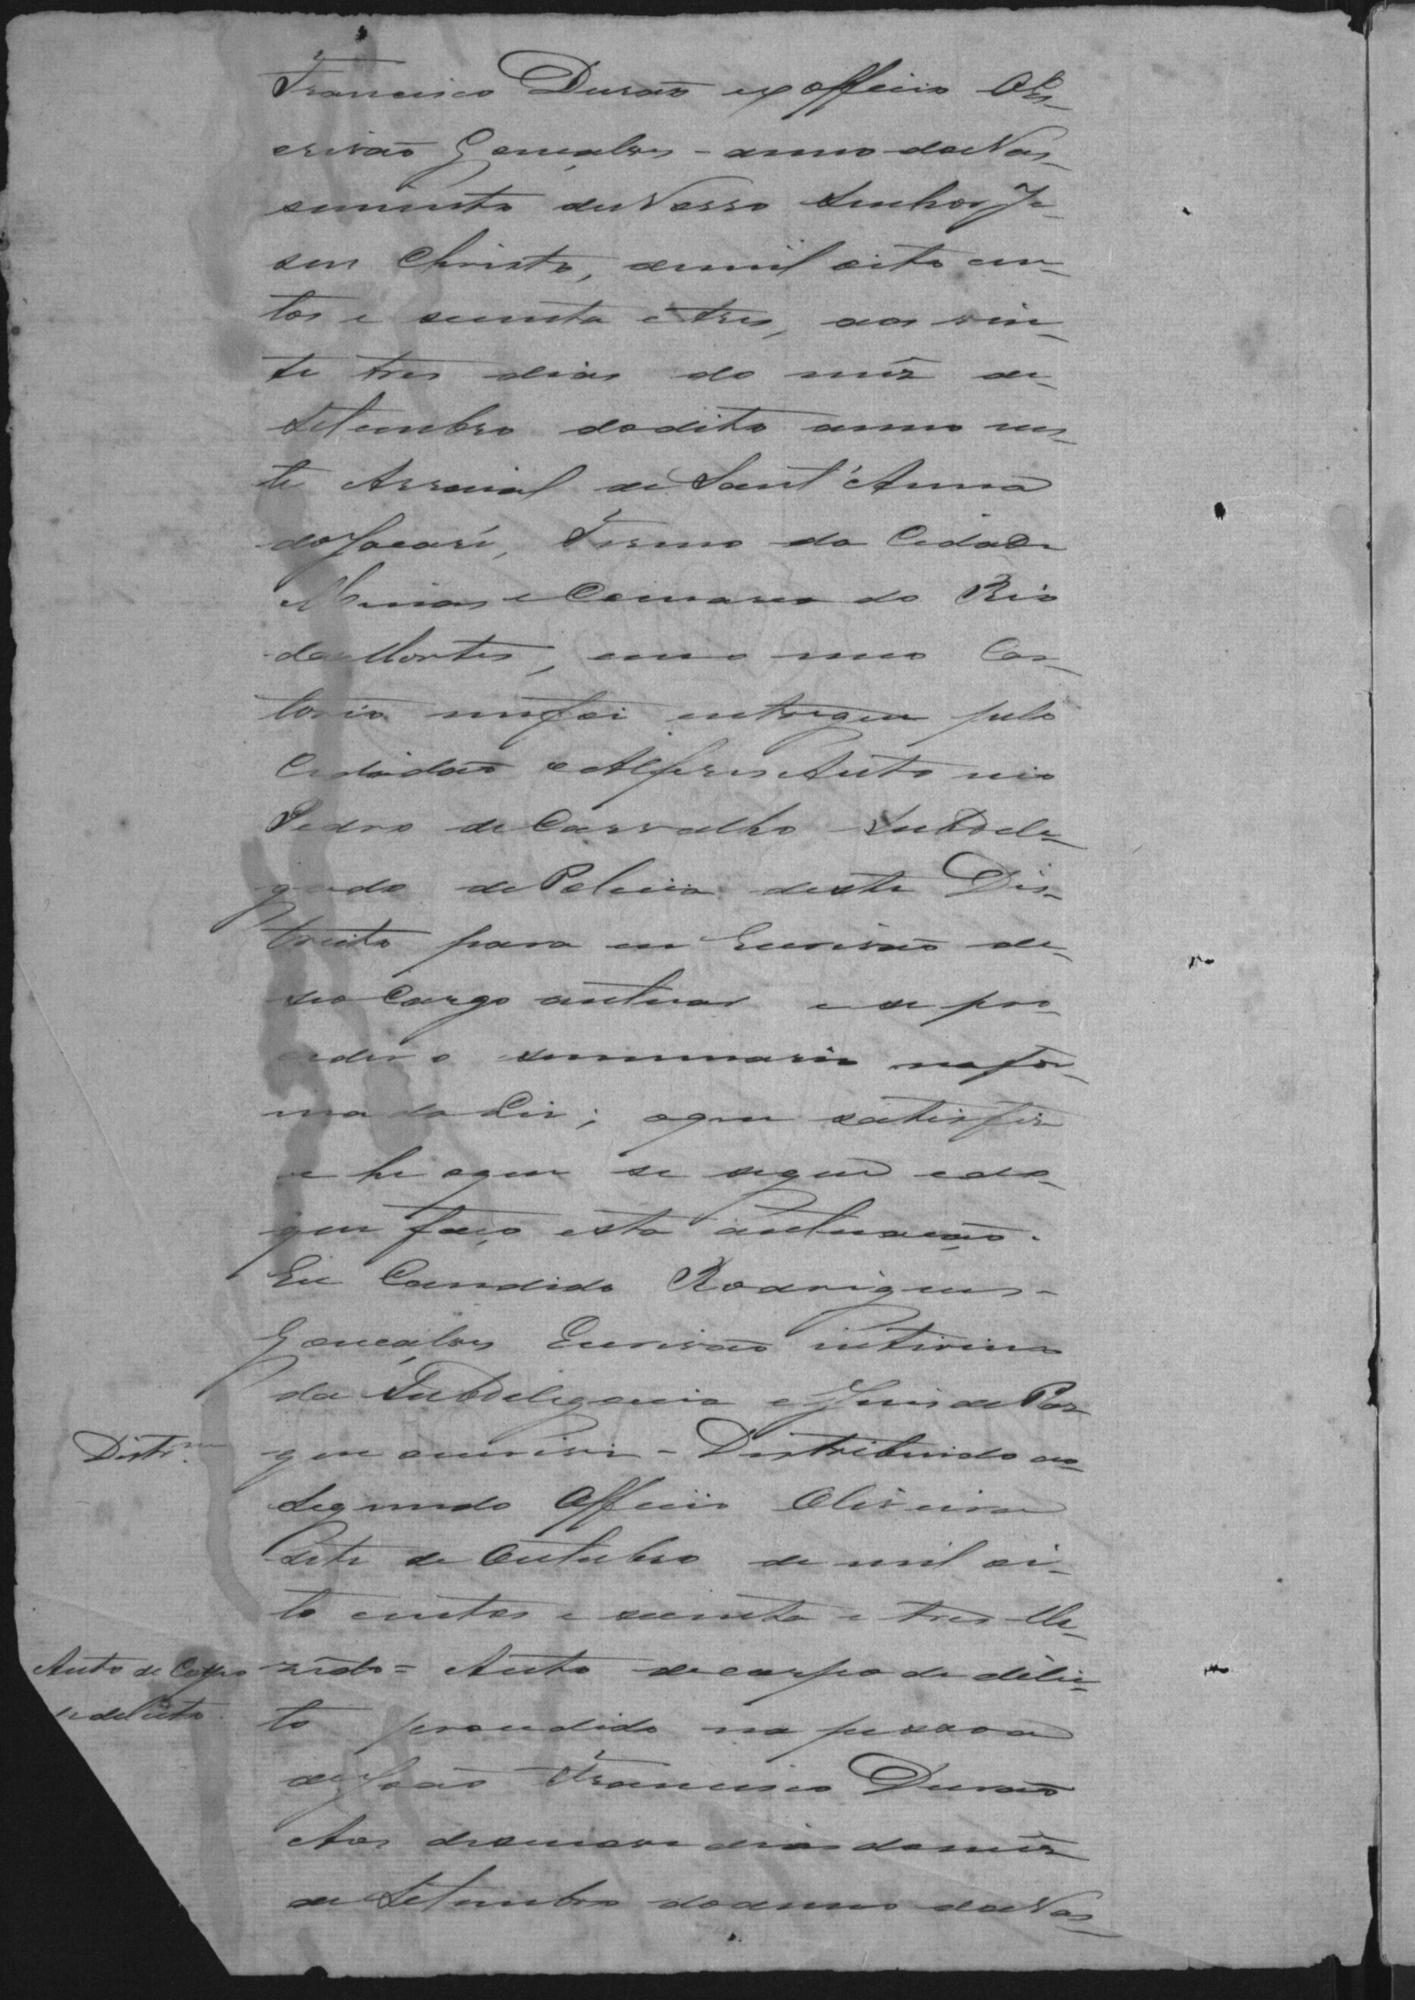 Francisco Durão ex officio O Es-
crivão Gonçalves - anno do Nas-
cimento de Nosso Senhor Je-
sus Christo, de mil oito cen-
tos e secenta e tres, aos vin-
te tres dias do mêz de
Setembro do dito anno nes-
te Arraial de Sant'Anna
do Jacaré, Termo da Cidade
Minas e Comarca do Rio
das Mortes, em o meu Car-
torio me foi entregue pelo
Cidadão e Alferes Anto nio
Pedro de Carvalho SubDele-
gado de Policia deste Dis-
tricto para eu Escrivão de
seo Cargo autuar e se pro-
ceder o summario na for-
ma da Lei; o que satisfiz
e he o que se segue e do
que faço esta autuação.
Eu Candido Rodrigues
Gonçalves Escrivão interino
da SubDelegacia e Juis de Paz
que escrivi - Distribuido ao
Distr.m
Segundo Officio Oliveira
Sete de Outubro de mil oi-
to centos e secenta e tres
Auto de Corpo
de delicto
Auto de corpo de delic-
to procedido na pessoa
de João Francisco Durão
Aos desenove dias do mêz
de Setembro do anno do Nas-